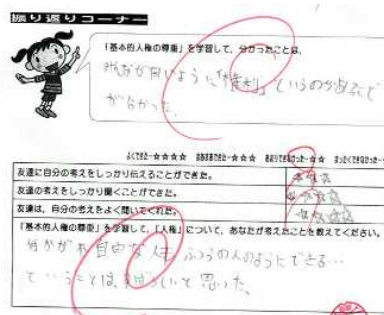 振り返りコーナー
「基本的人権の尊重」を学習して、分かったことは、
「権利」というのが
が分かった。
よくできた…★★★★ まあまあできた…★★★ あまりできなかった…★★ まったくできなかった…
友達に自分の考えをしっかり伝えることができた。
友達の考えをしっかり聞くことができた。
友達は、自分の考えをよく聞いてくれた。
「基本的人権の尊重」を学習して、「人権」について、あなたが考えたことを教えてください。
何かが不自由な人も ふつうの人のようにできる…
ということは、 と思った。